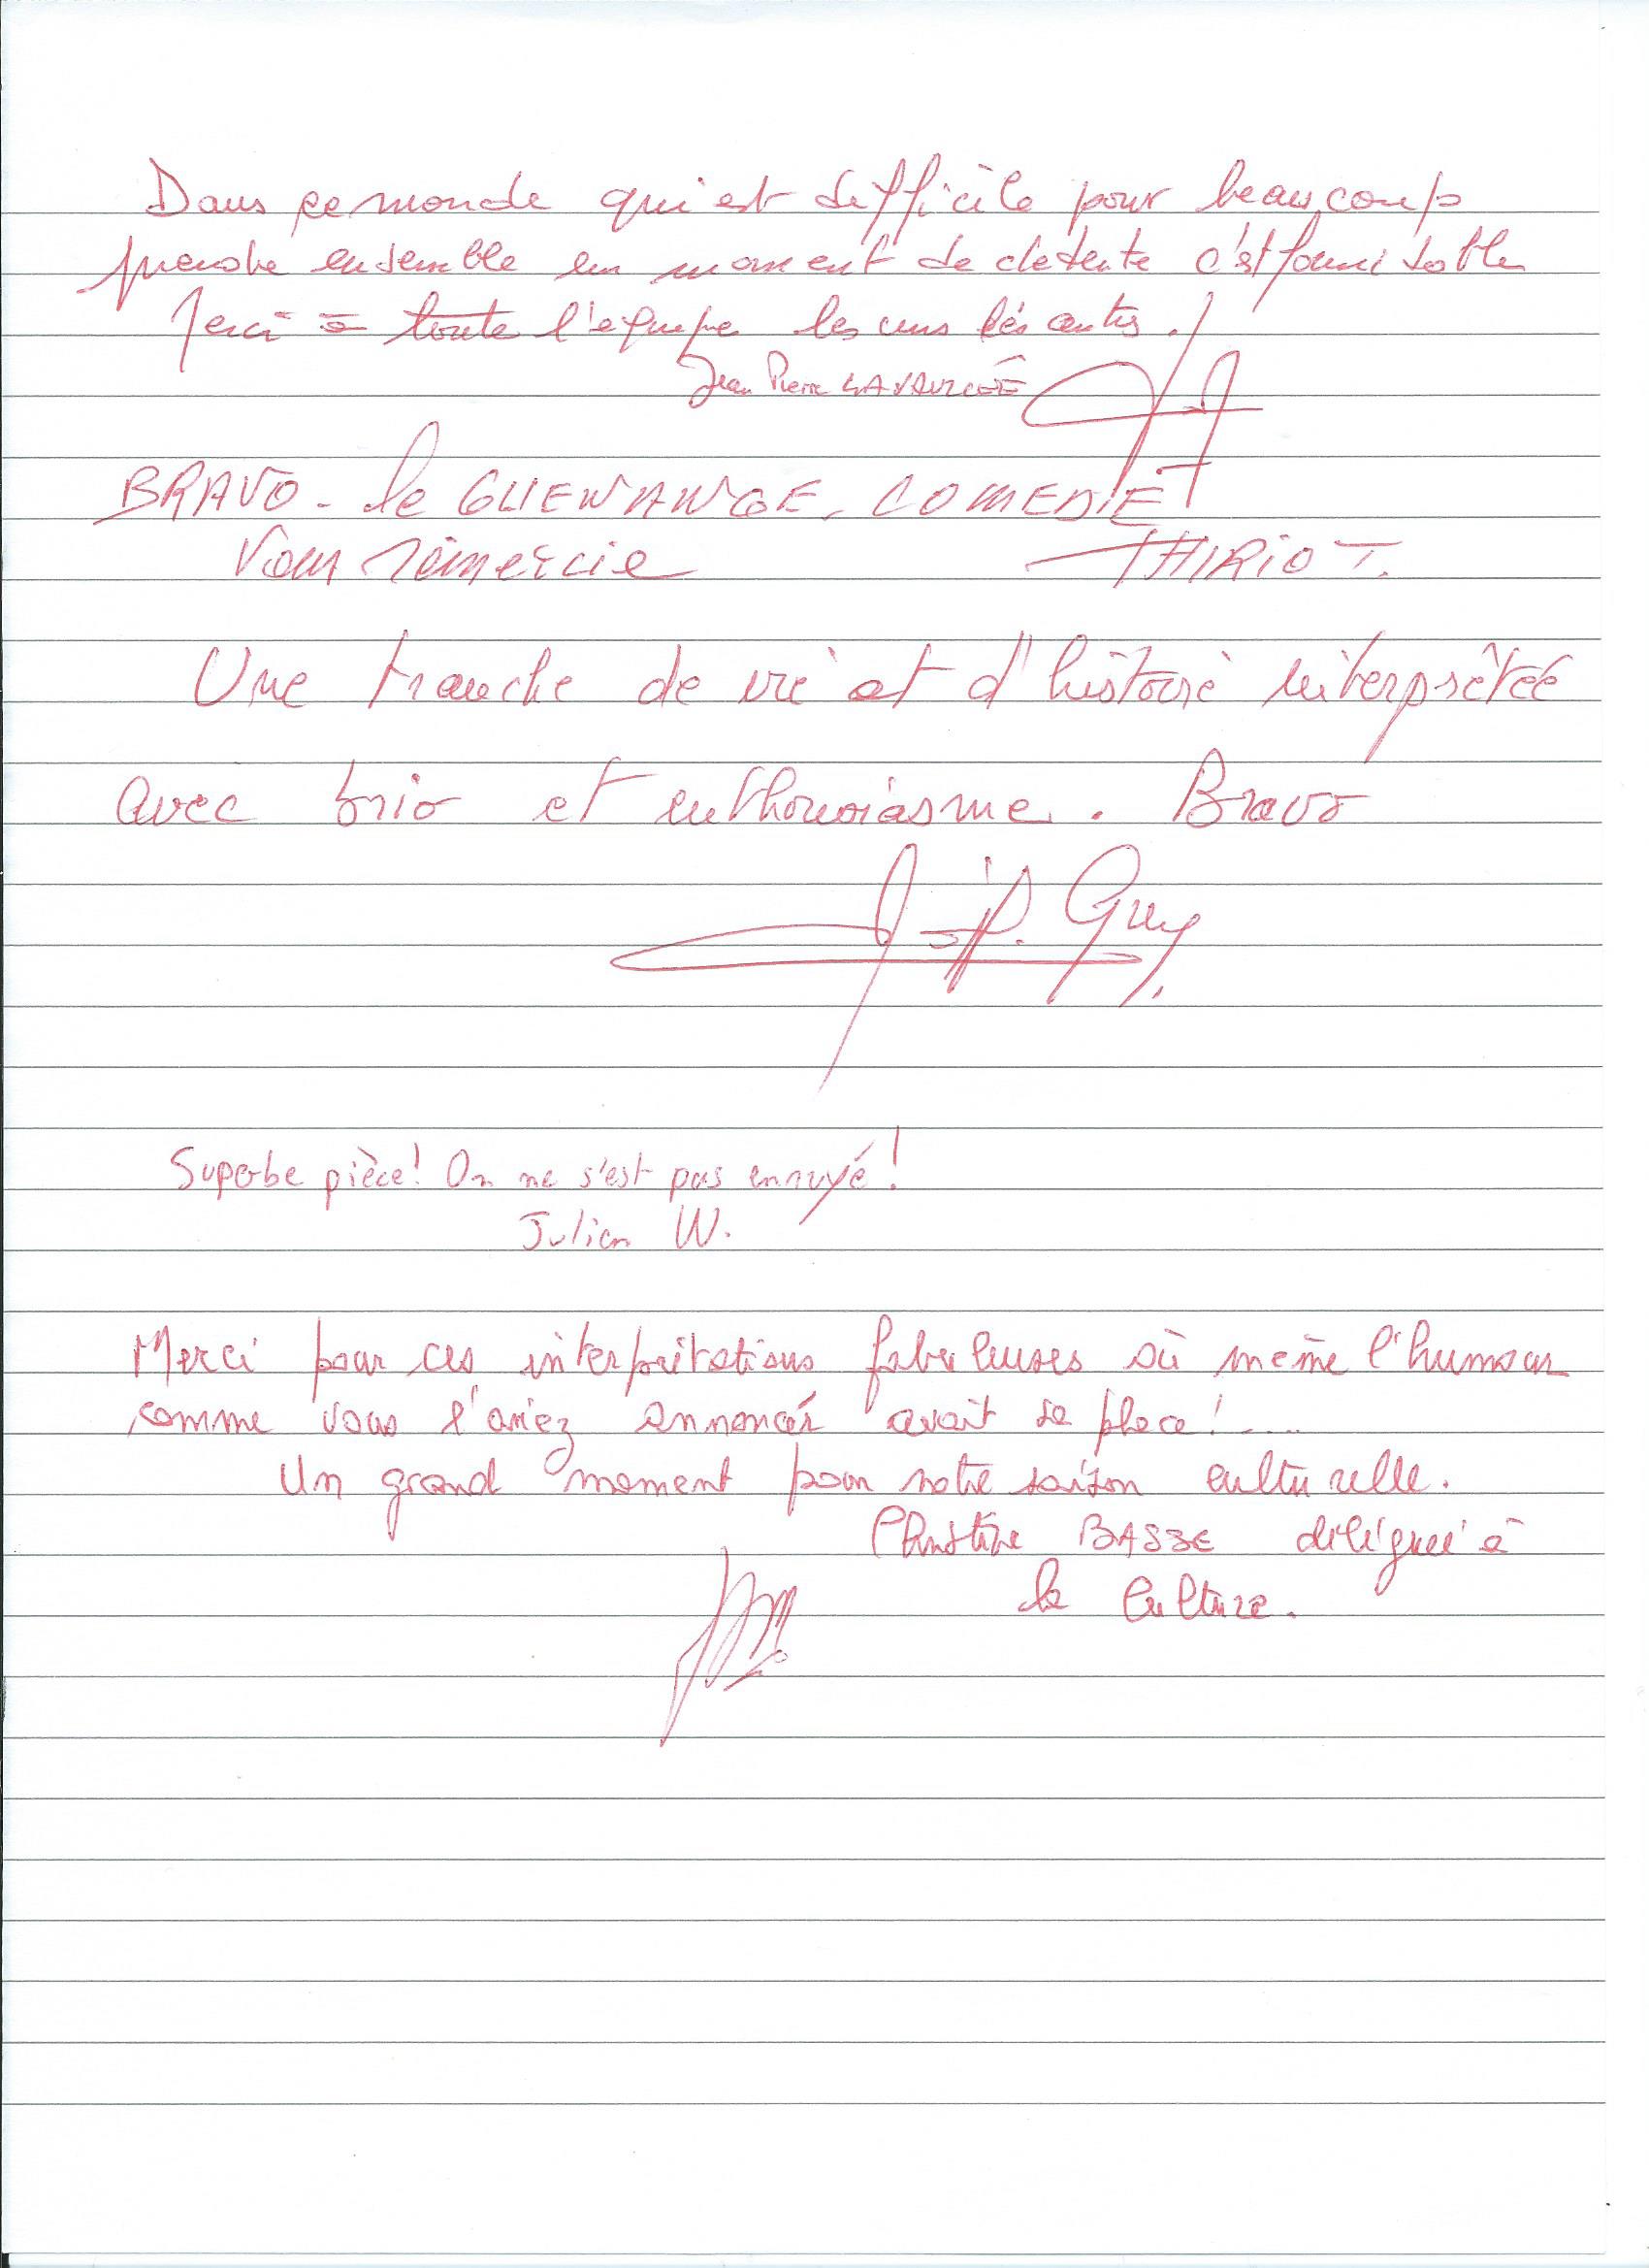 Dans ce monde qui est difficile pour beaucoup
prendre ensemble un moment de detente c'est formidable
Merci à toute l'equipe les uns les autres.
Jean Pierre
BRAVO - le GUENANGE - COMEDIE
Vous remercie THIRIOT.
Une tranche de vie et d'histoire interprétée
avec brio et enthousiasme. Bravo
J-P. Guy
Superbe pièce! On ne s'est pas ennuyé!
Julien W.
Merci pour ces interprétations fabuleuses où même l'humour
comme vous l'aviez annoncé avait sa place!....
Un grand moment pour notre saison culturelle.
Christine BASSE déléguée à
la Culture.